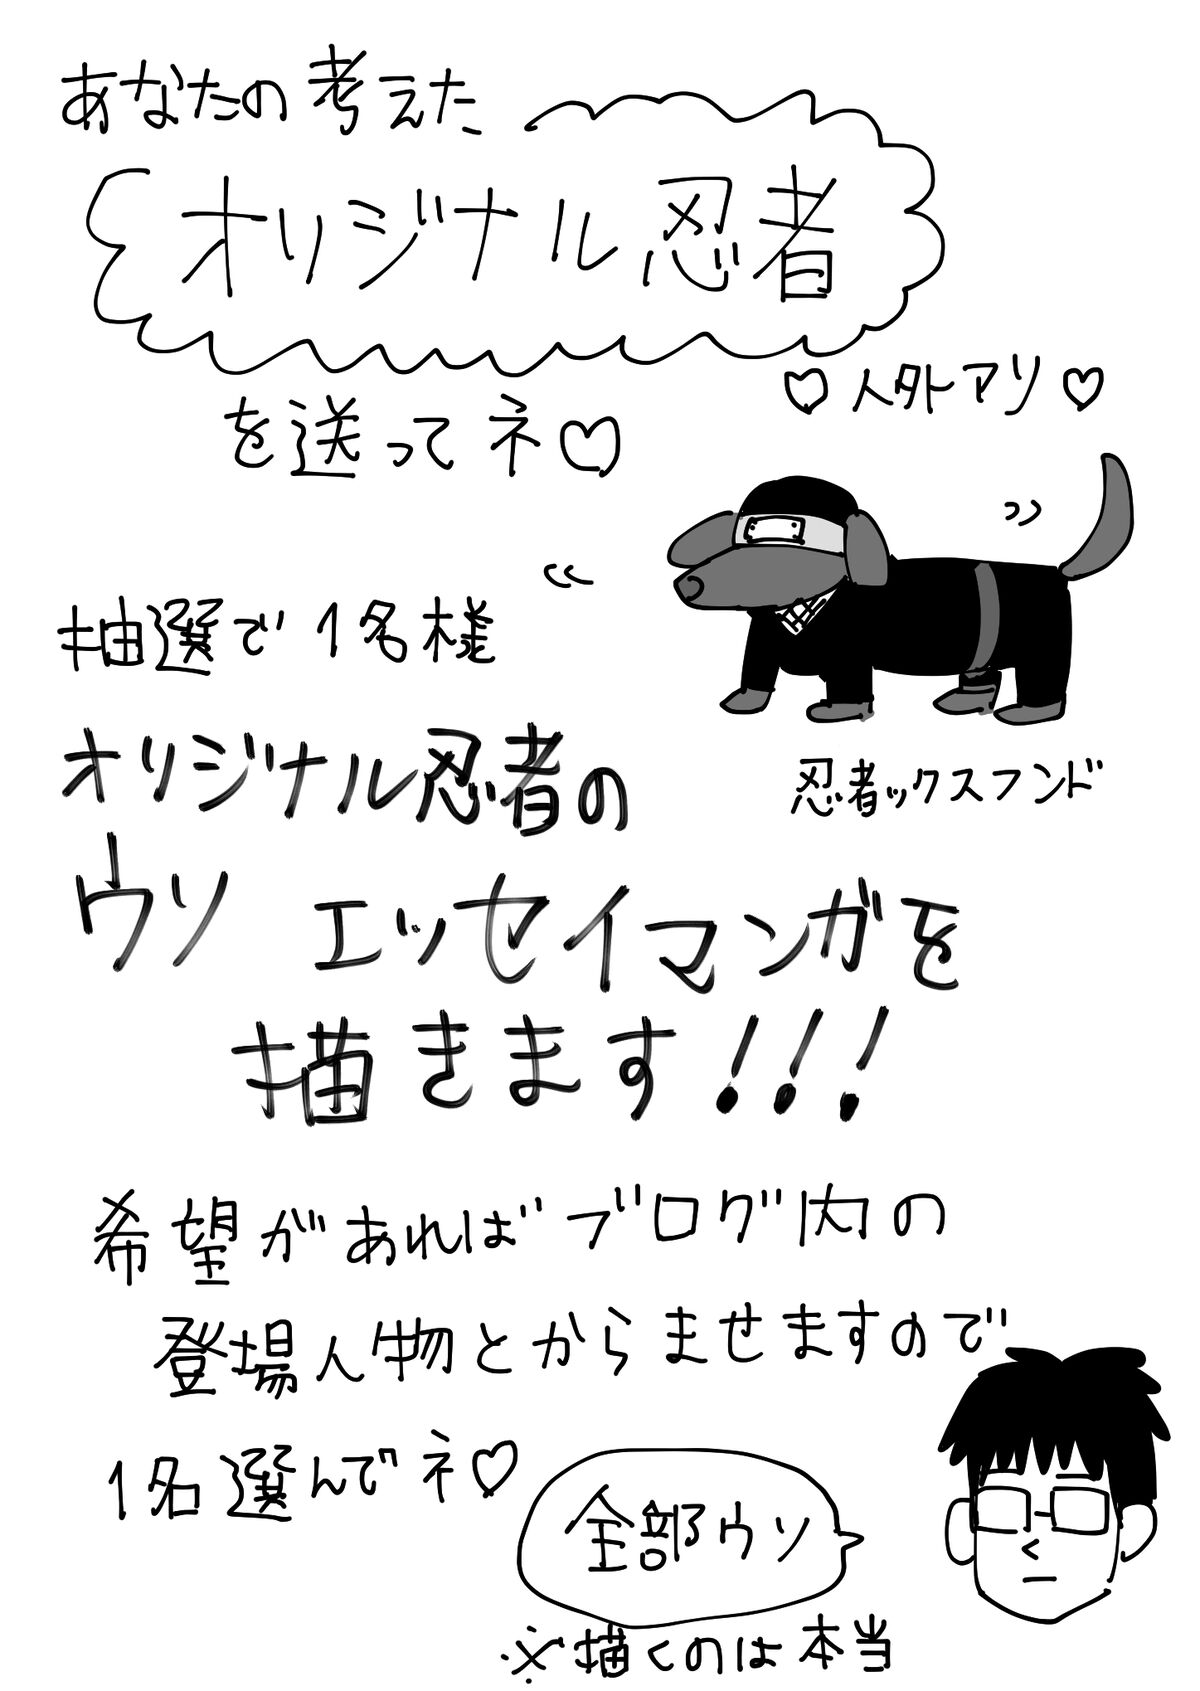 あなたの考えた
オリジナル忍者
を送ってネ♡
♡人外アリ♡
抽選で1名様
オリジナル忍者の
忍者ックスフンド
ウソ エッセイマンガを
描きます!!!
希望があればブログ内の
登場人物とからませますので
1名選んでネ♡
全部ウソ
※描くのは本当